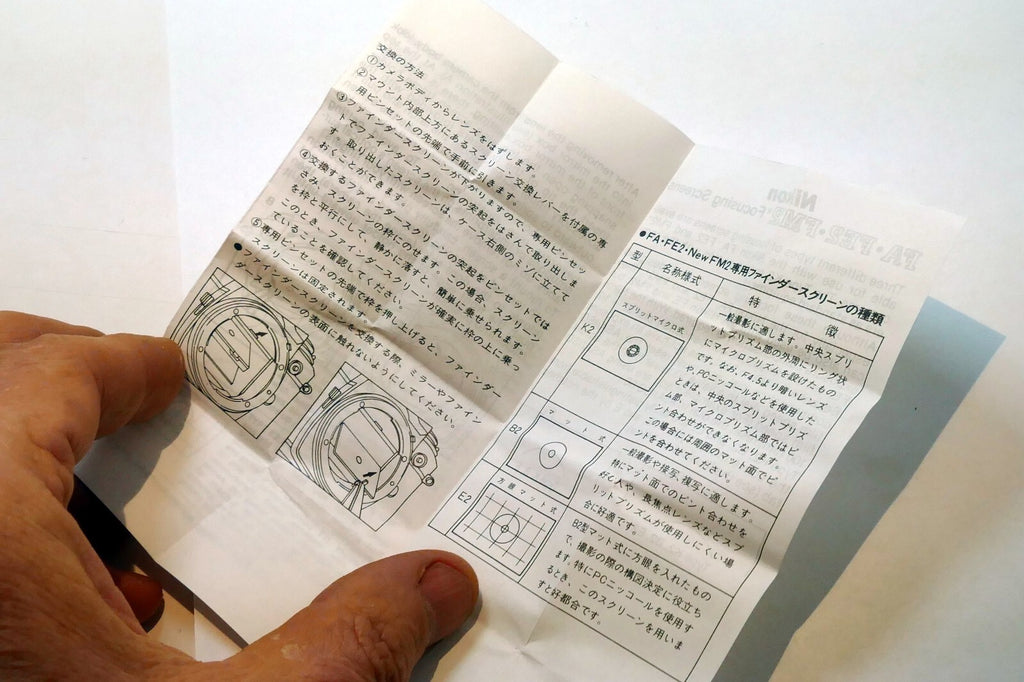 交換の方法
①カメラボディからレンズをはずします。
②マウント内部上方にあるスクリーン交換レバーを付属の専
用ピンセットの先端で手前に引きます。
③ファインダースクリーンが下がりますので、専用ピンセッ
トでファインダースクリーンの突起をはさんで取り出しま
す。取り出したスクリーンは、ケース右側のミゾに立てて
おくことができます。
④交換するファインダースクリーンの突起をピンセットでは
さみ、スクリーンの枠にのせます。この場合、スクリーン
を枠と平行にして、静かに落すと簡単に乗せられます。
このとき、ファインダースクリーンが確実に枠の上に乗っ
ていることを確認してください。
⑤専用ピンセットの先端で枠を押し上げると、ファインダー
スクリーンは固定されます。
●ファインダースクリーンを交換する際、ミラーやファイン
ダースクリーンの表面に触れないようにしてください。
●FA・FE2・New FM2専用ファインダースクリーンの種類
型 名称様式 特 徴
K2 スプリットマイクロ式
一般撮影に適します。中央スプリ
ットプリズム部の外周にリング状
にマイクロプリズムを設けたもの
です。なお、F4.5より暗いレンズ
や、PCニッコールなどを使用した
ときは、中央のスプリットプリズ
ム部、マイクロプリズム部ではピ
ント合わせができなくなります。
この場合には周囲のマット面でピ
ントを合わせてください。
B2 マット式
一般撮影や接写、複写に適します。
特にマット面でのピント合わせを
好む人や、長焦点レンズなどスプ
リットプリズムが使用しにくい場
合に好適です。
E2 方眼マット式
B2型マット式に方眼を入れたもの
で、撮影の際の構図決定に役立ち
ます。特にPCニッコールを使用す
るとき、このスクリーンを用いま
すと好都合です。
Nikon
FA・FE2・FM2 Focusing Screen